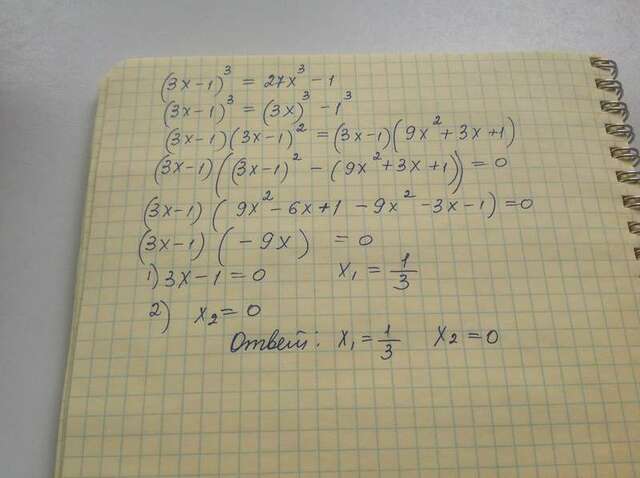 (3x-1)³ = 27x³ - 1
(3x-1)³ = (3x)³ - 1³
(3x-1)(3x-1)² = (3x-1)(9x²+3x+1)
(3x-1)((3x-1)² - (9x²+3x+1)) = 0
(3x-1)(9x²-6x+1 -9x²-3x-1) = 0
(3x-1)(-9x) = 0
1) 3x-1=0 x₁ = 1/3
2) x₂ = 0
Ответ: x₁ = 1/3 x₂ = 0